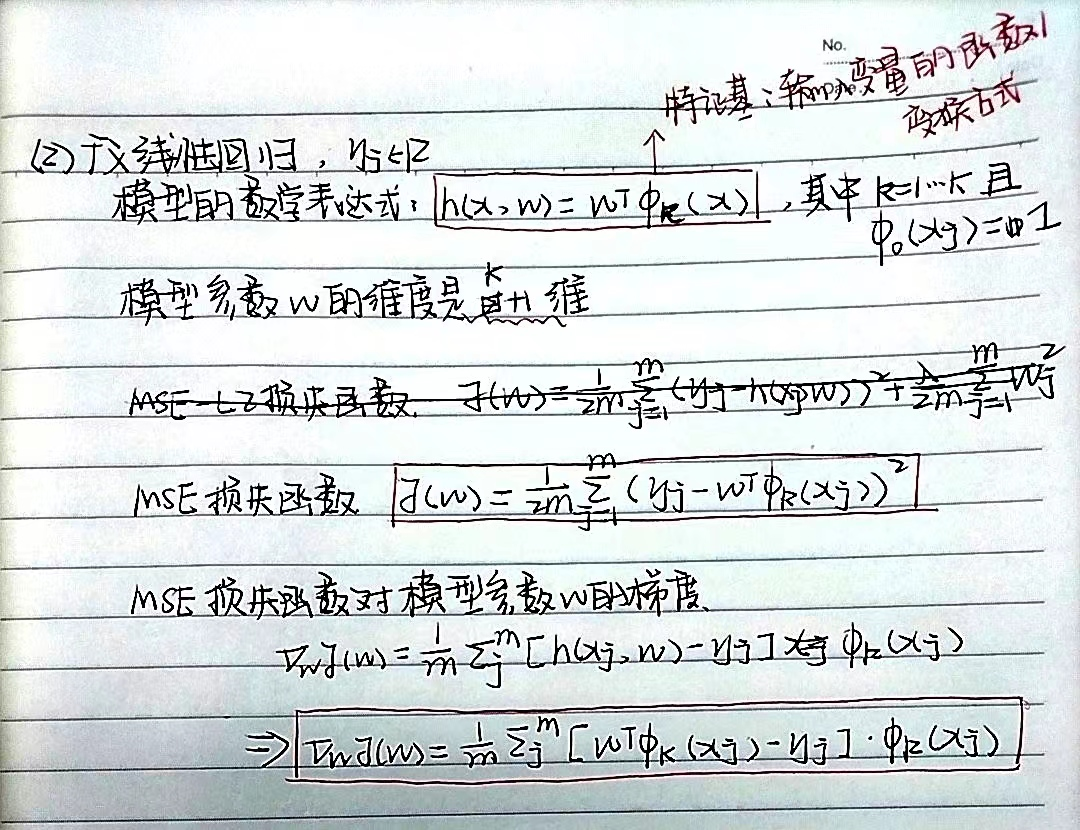 No.
特征基：输入变量的函数
变换方式
(2) 广义线性回归，yj∈R
模型的数学表达式：h(x,w)=wTϕk(x)，其中 k=1…K 且
ϕ0(xj)=1
模型参数w的维度是K+1维
MSE-L2损失函数 J(w)=1/2m ∑j=1^m (yj-h(xj,w))²+λ/2m ∑j=1^m wj²
MSE损失函数 J(w)=1/2m ∑j=1^m (yj-wTϕk(xj))²
MSE损失函数对模型参数w的梯度
∇wJ(w)=1/m ∑j^m [h(xj,w)-yj] ϕk(xj)
⇒ ∇wJ(w)=1/m ∑j^m [wTϕk(xj)-yj]·ϕk(xj)